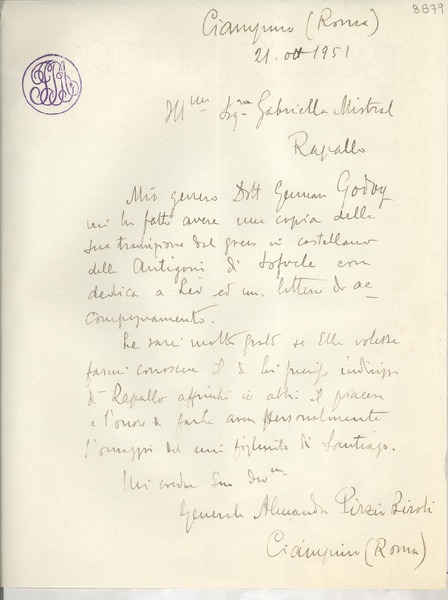 3879
Ciampino (Roma)
21. ott 1951
Ill.ma Sig.ra Gabriella Mistral
Rapallo
Mio genero Dott German Godoy
mi ha fatto avere una copia della
sua traduzione dal greco in castellano
della Antigone di Sofocle con
dedica a Lei ed una lettera di ac-
compagnamento.
Le sarei molto grato se Ella volesse
farmi conoscere il di Lei preciso indirizzo
di Rapallo affinché io abbia il piacere
e l'onore di farle avere personalmente
l'omaggio del mio figliuolo di Santiago.
Mi creda Suo dev.mo
Generale Alessandro Pirzio Biroli
Ciampino (Roma)